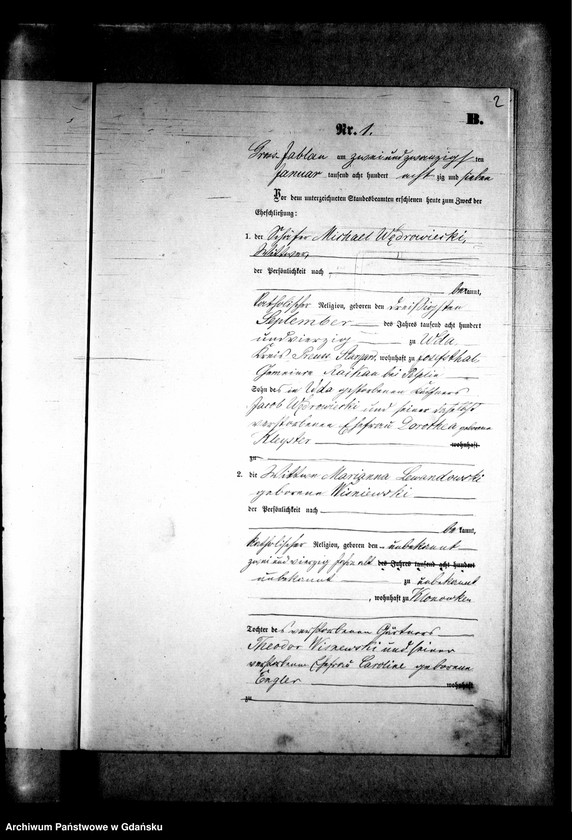 2
B.
Nr. 1.
Gross Jablau am zweiundzwanzigsten
Januar tausend acht hundert achtzig und sieben
Vor dem unterzeichneten Standesbeamten erschienen heute zum Zweck der
Eheschließung:
1. der Schäfer Michael Wędrowierki,
Wittwer,
der Persönlichkeit nach
bekannt,
katholischer Religion, geboren den dreißigsten
September des Jahres tausend acht hundert
undvierzig zu Wda
Kreis Preuss. Stargard, wohnhaft zu Josephsthal
Gemeinde Raikau bei Pelplin
Sohn des in Wda gestorbenen
Jacob Wędrowierki und seiner daselbst
verstorbenen Ehefrau Dorothea geborene
Kleyster wohnhaft
zu
2. die Wittwe Marianna Lewandowski
geborene Wisniewski
der Persönlichkeit nach
bekannt,
katholischer Religion, geboren den unbekannt
zweiundvierzig Jahre alt des Jahres tausend acht hundert
unbekannt zu unbekannt
, wohnhaft zu Klonowken
Tochter des verstorbenen Gärtners
Theodor Wisniewski und seiner
verstorbenen Ehefrau Caroline geborene
Engler wohnhaft
zu
Archiwum Państwowe w Gdańsku